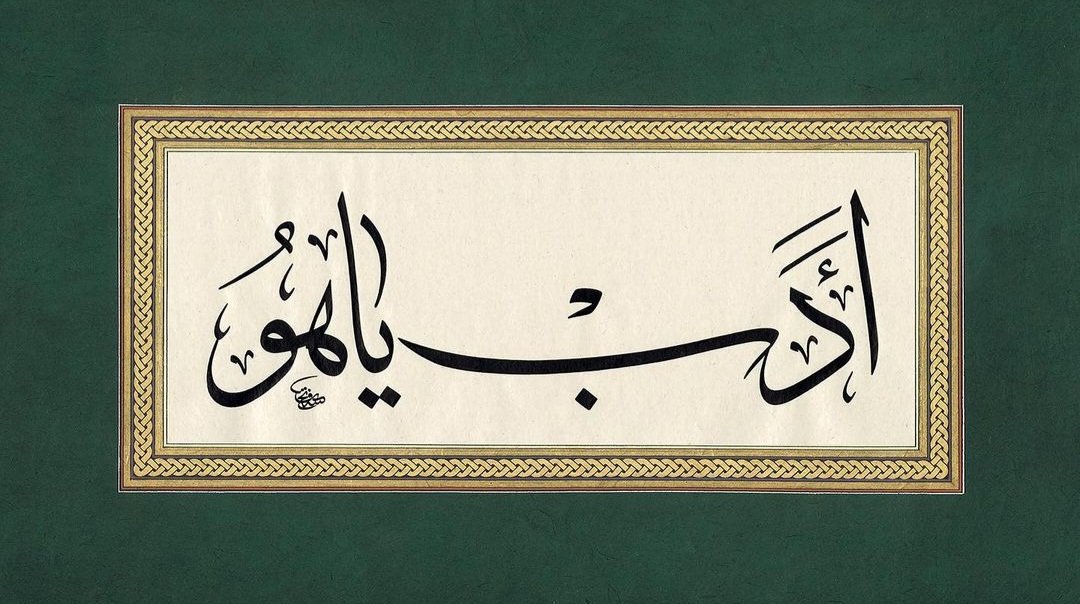 أَدَبْ يا هُو